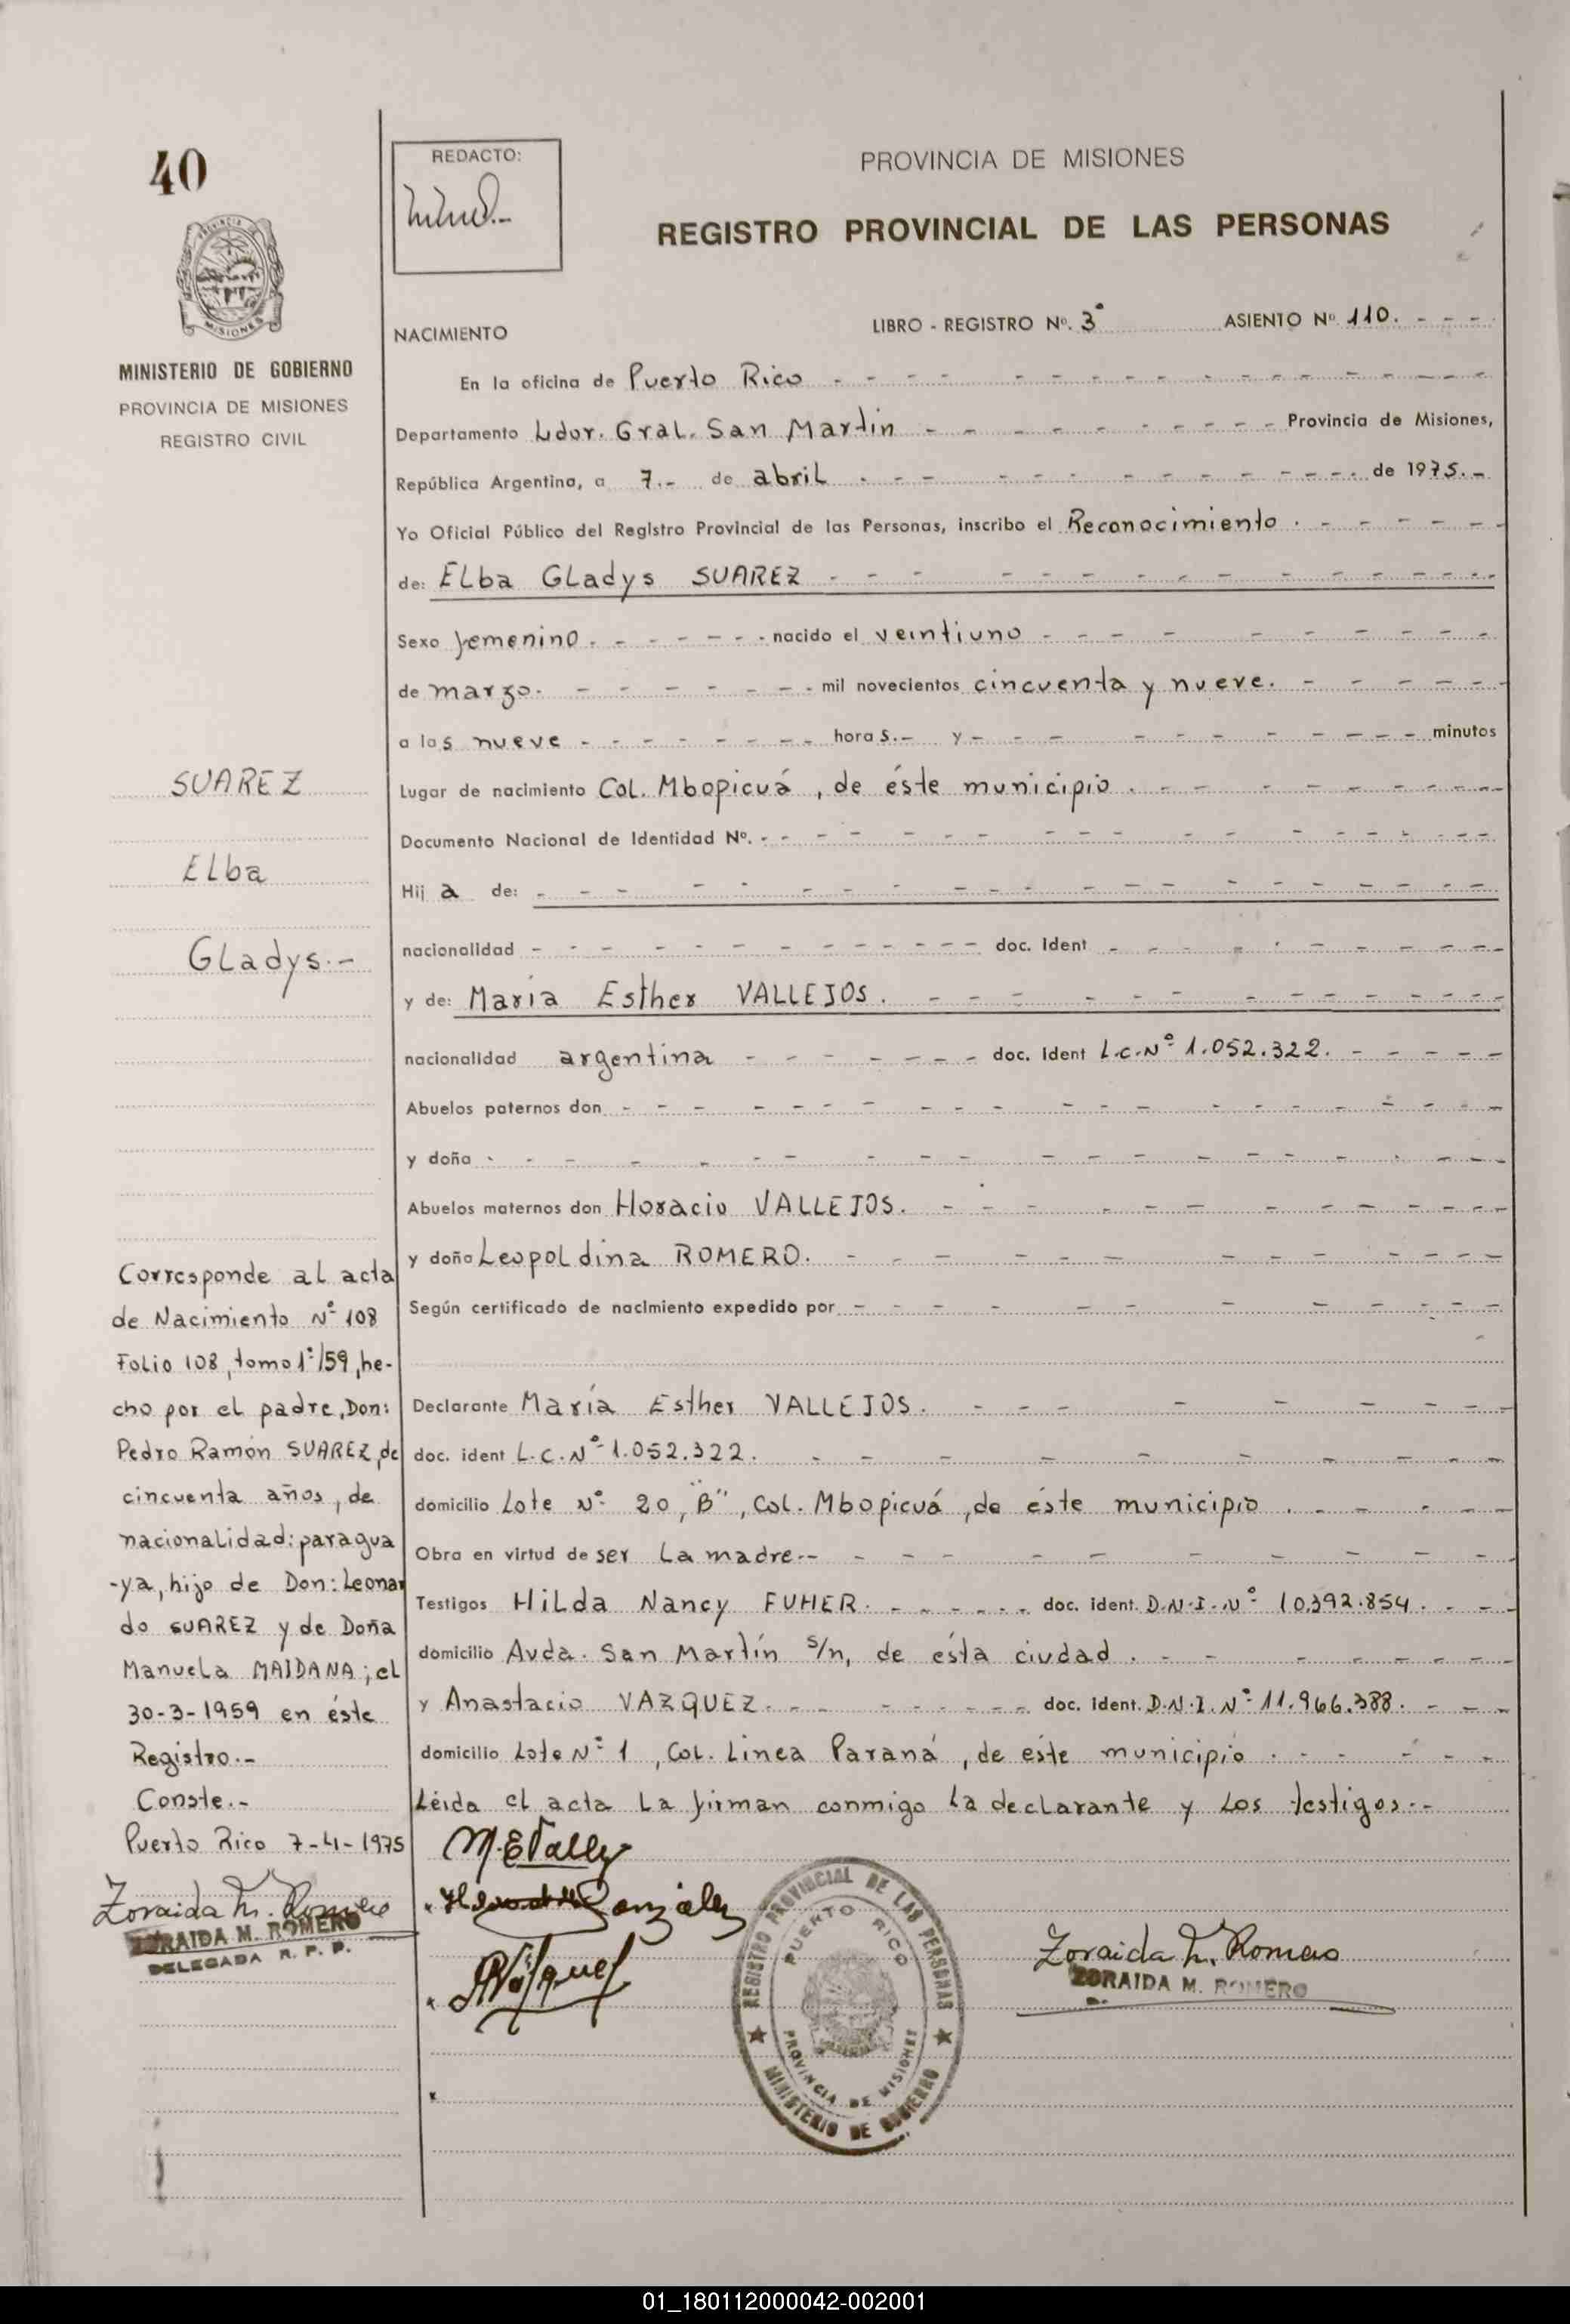 40
PROVINCIA
MISIONES
MINISTERIO DE GOBIERNO
PROVINCIA DE MISIONES
REGISTRO CIVIL
REDACTO:
PROVINCIA DE MISIONES
REGISTRO PROVINCIAL DE LAS PERSONAS
NACIMIENTO LIBRO - REGISTRO Nº. 3º ASIENTO Nº 110. - - -
En la oficina de Puerto Rico
Departamento Ldor. Gral. San Martin - - - Provincia de Misiones,
República Argentina, a 7.- de abril - - - de 1975.-
Yo Oficial Público del Registro Provincial de las Personas, inscribo el Reconocimiento . - - -
de: ELba GLadys SUAREZ - - -
Sexo femenino. - - - nacido el veintiuno - - -
de marzo. - - - mil novecientos cincuenta y nueve. - - -
a las nueve - - - horas.- y - - - minutos
Lugar de nacimiento Col. Mbopicuá, de éste municipio. - - -
Documento Nacional de Identidad Nº. - - -
Hija de: - - -
nacionalidad - - - doc. Ident - - -
y de: María Esther VALLEJOS. - - -
nacionalidad argentina - - - doc. Ident L.C.Nº 1.052.322. - - -
Abuelos paternos don - - -
y doña - - -
Abuelos maternos don Horacio VALLEJOS. - - -
y doña Leopoldina ROMERO. - - -
Según certificado de nacimiento expedido por - - -
Declarante María Esther VALLEJOS. - - -
doc. ident L.C.Nº 1.052.322. - - -
domicilio Lote Nº 20, "B", Col. Mbopicuá, de éste municipio . - - -
Obra en virtud de ser La madre.- - - -
Testigos HiLda Nancy FUHER. - - - doc. ident. D.N.I.Nº 10.392.854. - - -
domicilio Avda. San Martín s/n, de ésta ciudad . - - -
y Anastacio VAZQUEZ. - - - doc. ident. D.N.I.Nº 11.966.388. - - -
domicilio Lote Nº 1, Col. Linea Paraná, de este municipio . - - -
Léida el acta La firman conmigo La declarante y Los testigos.-
SUAREZ
ELba
GLadys.-
Corresponde al acta
de Nacimiento Nº 108
Folio 108, tomo 1º/59, he-
cho por el padre, Don:
Pedro Ramón SUAREZ, de
cincuenta años, de
nacionalidad: paragua
-ya, hijo de Don: Leonar
do SUAREZ y de Doña
Manuela MAIDANA; el
30-3-1959 en éste
Registro.-
Conste.-
Puerto Rico 7-4-1975
Zoraida M. Romero
ZORAIDA M. ROMERO
DELEGADA R. P. P.
REGISTRO PROVINCIAL DE LAS PERSONAS
PUERTO RICO
PROVINCIA DE MISIONES
MINISTERIO DE GOBIERNO
Zoraida M. Romero
ZORAIDA M. ROMERO
01_180112000042-002001